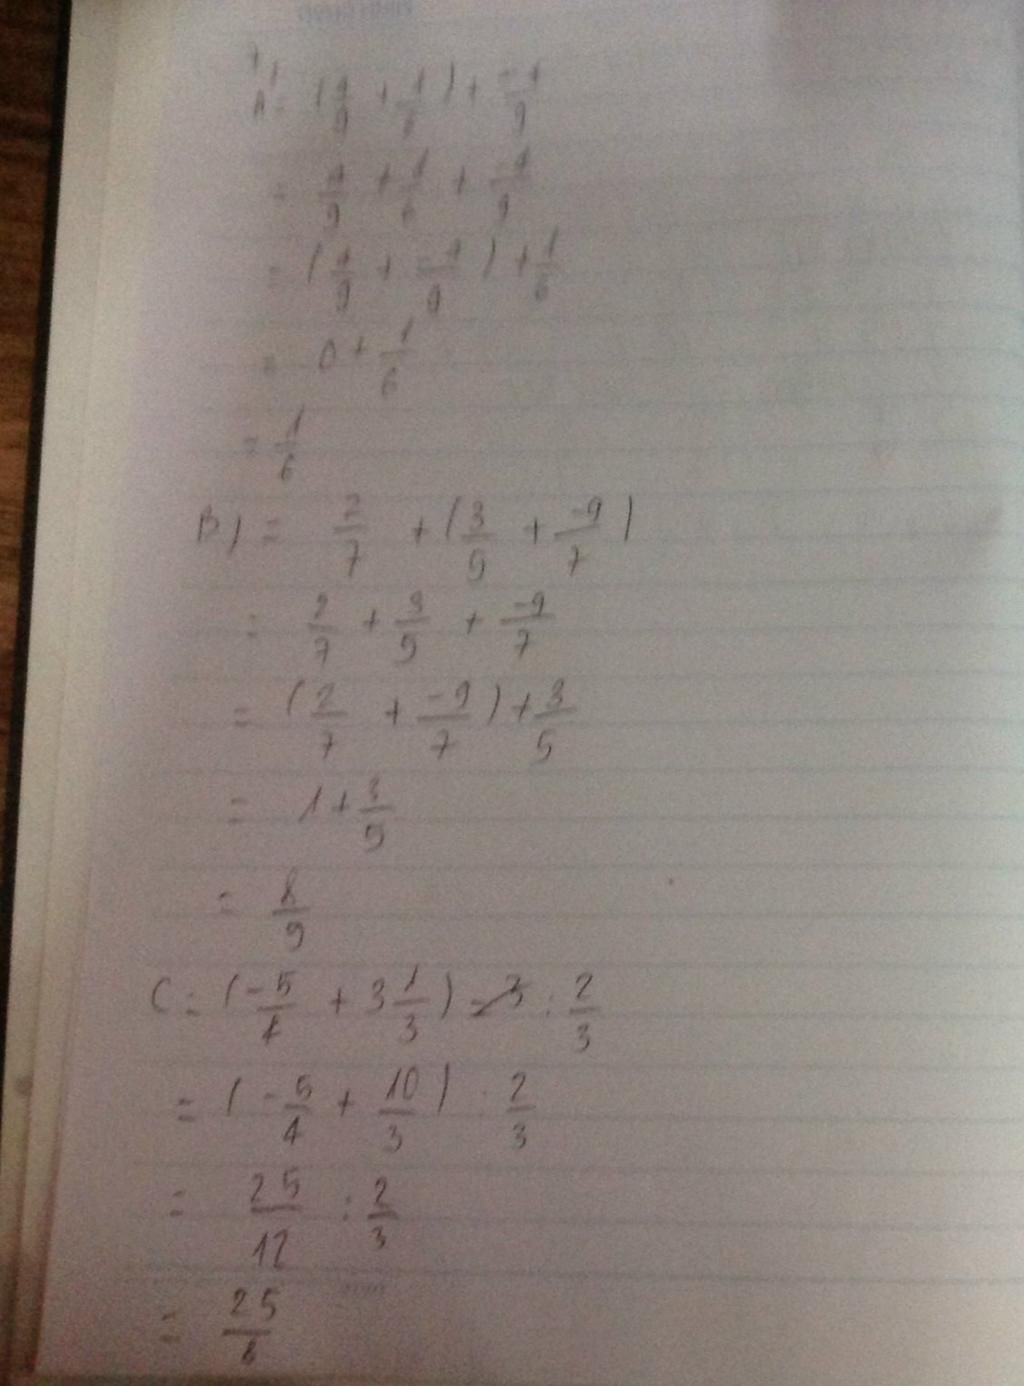 A = (4/9 + 1/6) + -4/9
= 4/9 + 1/6 + -4/9
= (4/9 + -4/9) + 1/6
= 0 + 1/6
= 1/6
B) = 2/7 + (3/9 + -9/7)
= 2/7 + 3/9 + -9/7
= (2/7 + -9/7) + 3/5
= 1 + 3/9
= 8/9
C = (-5/4 + 3 1/3) : 2/3
= (-5/4 + 10/3) : 2/3
= 25/12 : 2/3
= 25/8